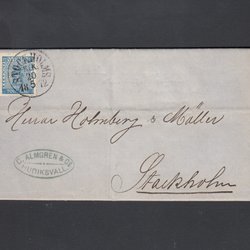 STOCKHOLM
20
Herrar Holmberg & Möller
C. ALMGREN & Co
HUDIKSVALL
Stockholm